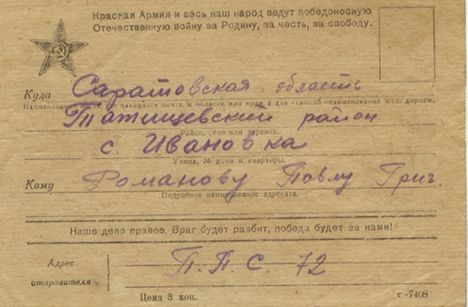 Красная Армия и весь наш народ ведут победоносную
Отечественную войну за Родину, за честь, за свободу.
Куда Саратовская область
Наименование места, где находится почта, и области или края, а для станций—наименование жел. дороги.
Татищевский район
Район, село или деревня.
с. Ивановка
Улица, № дома и квартиры.
Кому Романову Павлу Григ.
Подробное наименование адресата.
Наше дело правое. Враг будет разбит, победа будет за нами!
Адрес отправителя П.П.С. 72
Цена 8 коп. г -7408